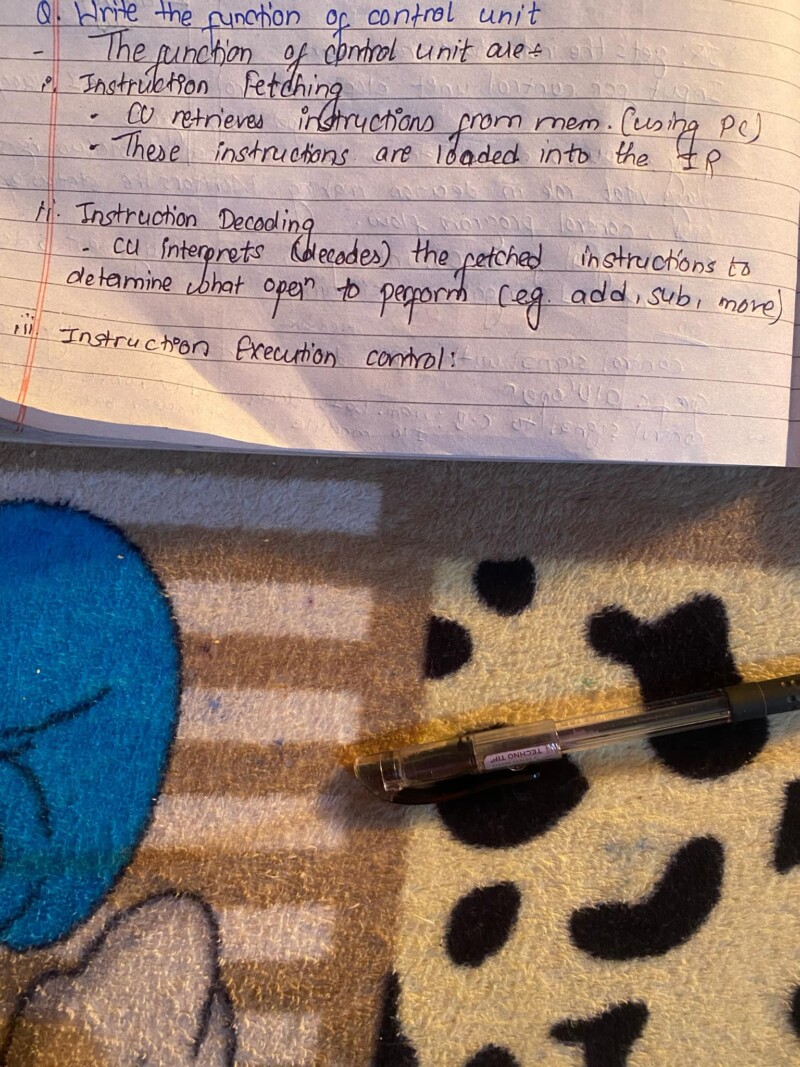 Q. Write the function of control unit
- The function of control unit are:-
i. Instruction Fetching
- CU retrieves instructions from mem. (using PC)
- These instructions are loaded into the IR
ii. Instruction Decoding
- CU interprets (decodes) the fetched instructions to
determine what operⁿ to perform (eg. add, sub, move)
iii. Instruction Execution control:
TECHNO TIP